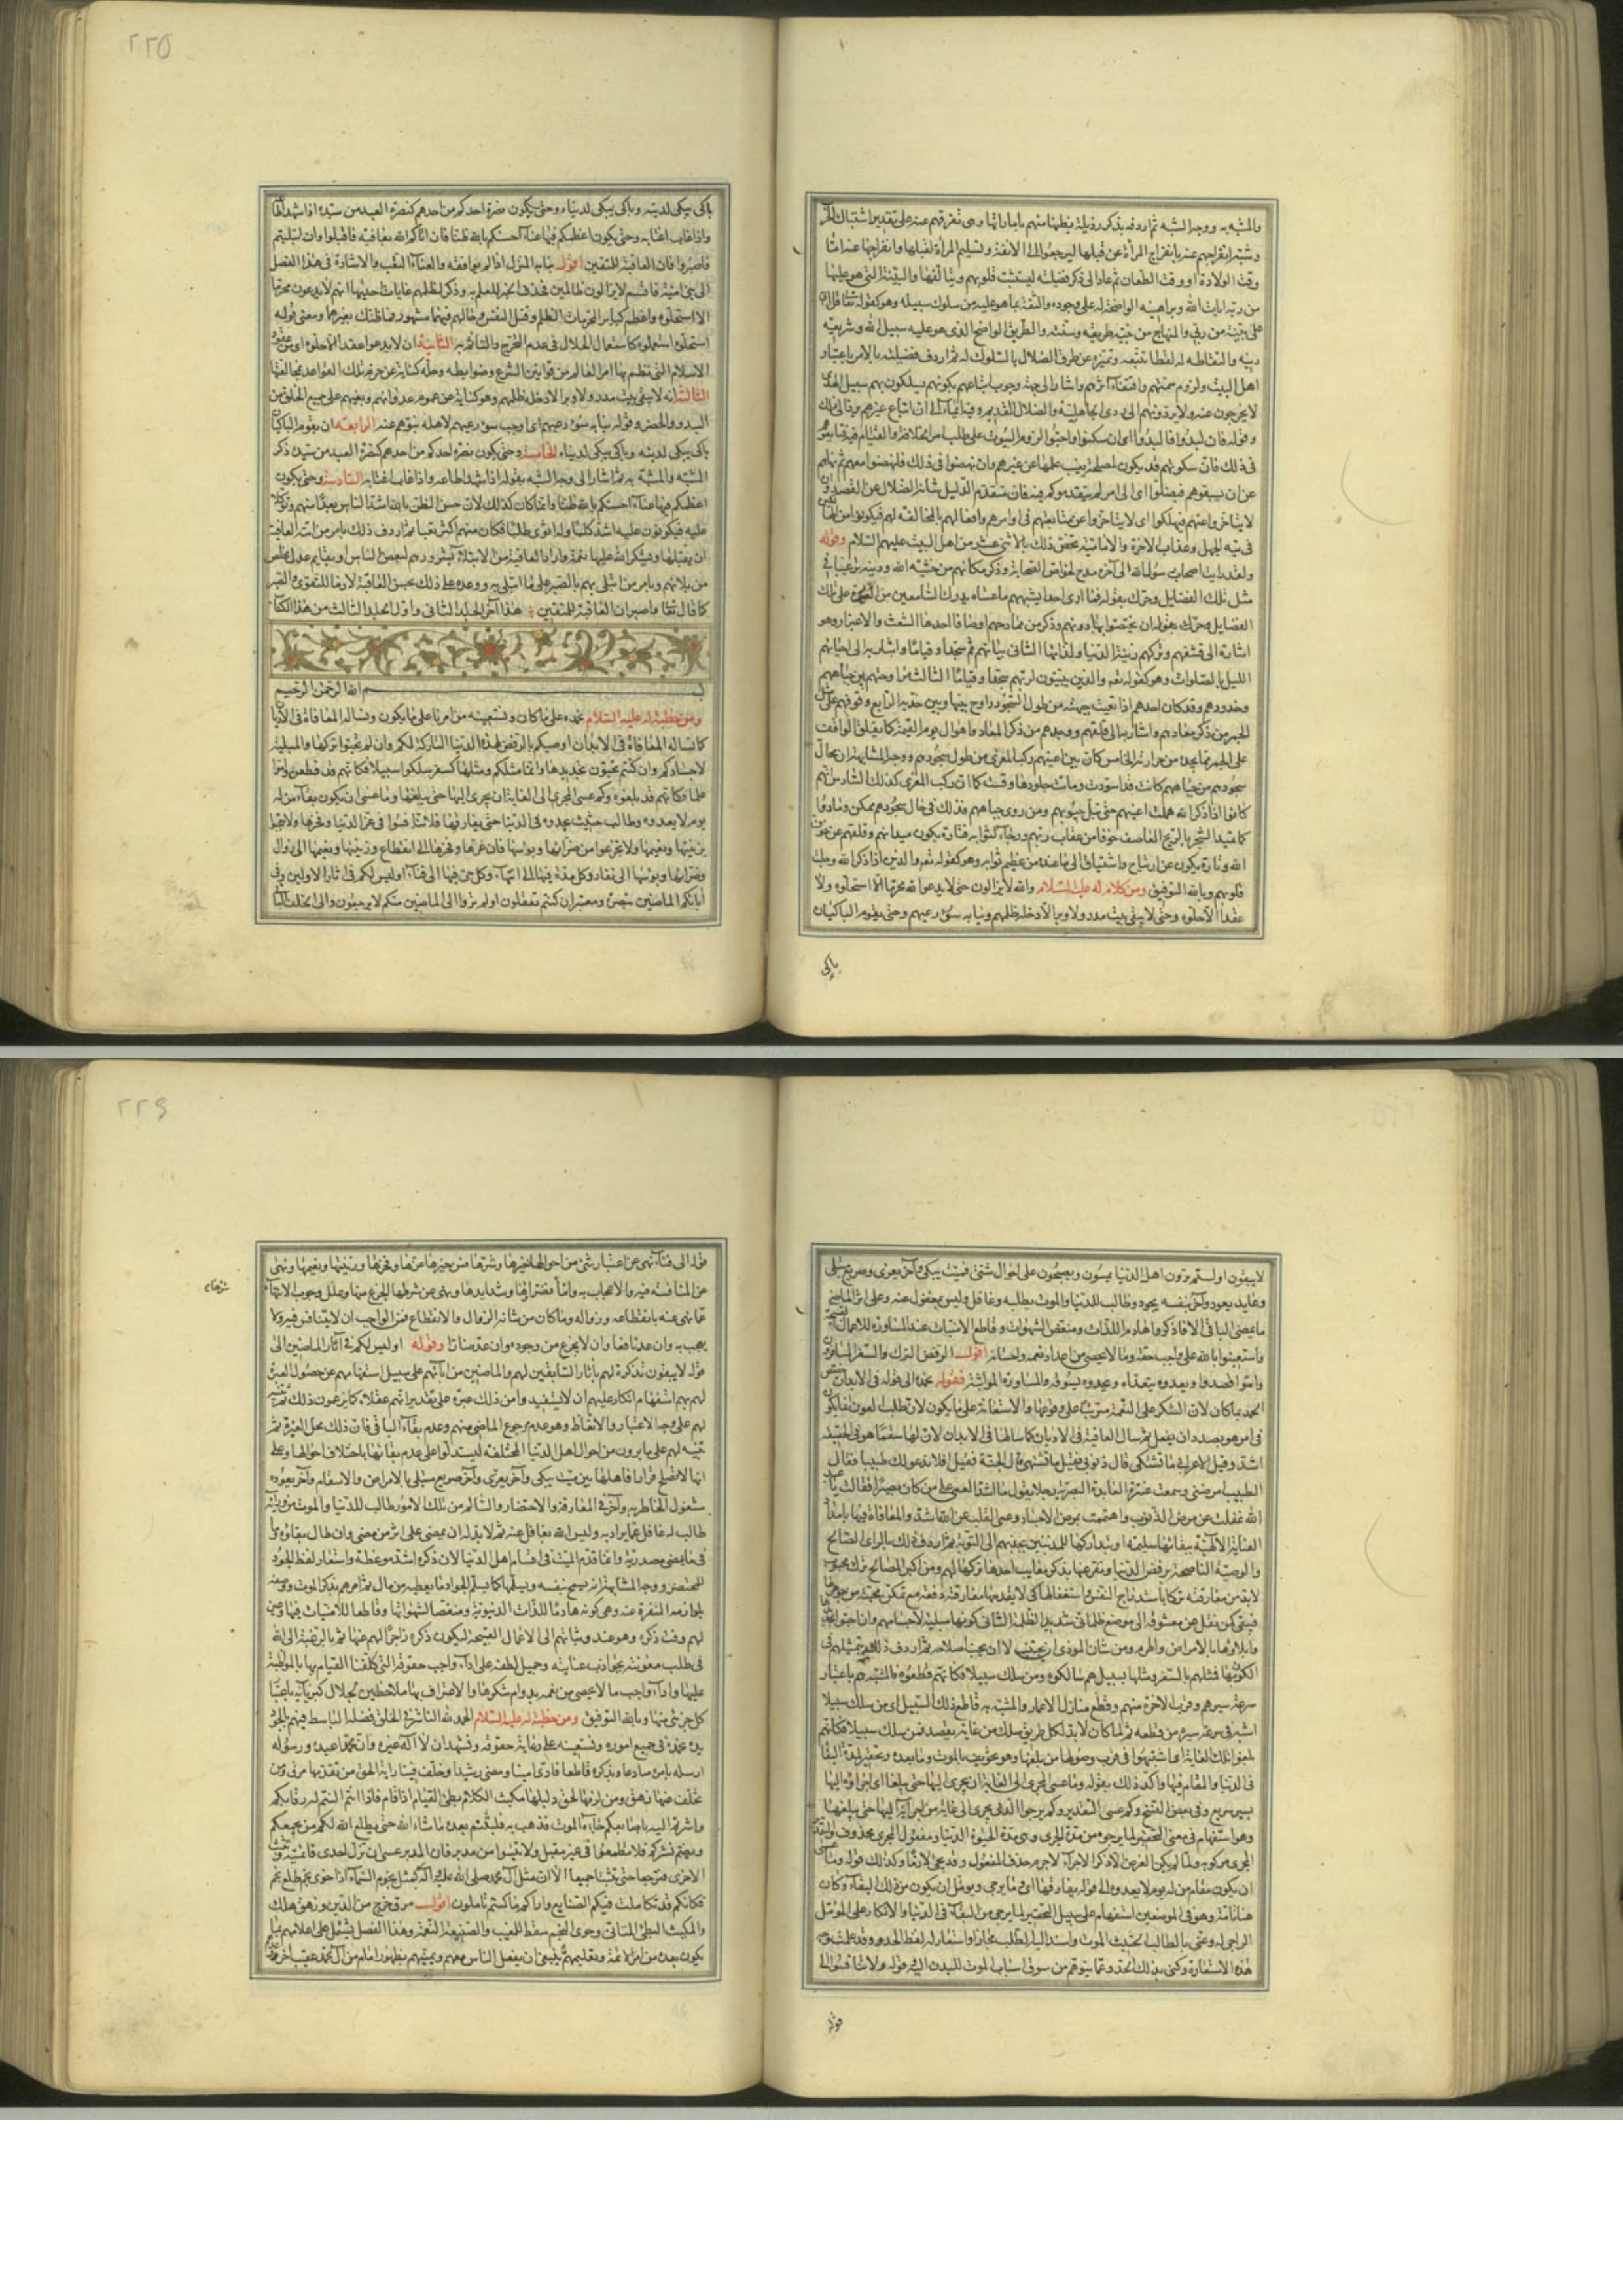 والمشبه به ووجه الشبه ثم اردفه بذكر رذيلة
وشبه انفراجهم عنه بانفراج المرأة عن قبلها ليرجعوا الى الانفة وتسليم المرأة لقبلها وانفراجها عنه اما
وقت الولادة او وقت الطعان ثم عاد الى ذكر فضيلته ليتثبت قلوبهم ويتألفها والبينة التي هو عليها
من ربه ايات الله وبراهينه الواضحة له على وجوده والثقة بما هو عليه من سلوك سبيله وهو كقوله تعالى قل اني
على بينة من ربي والمنهاج من نبيه طريقه وسنته والطريق الواضح الذي هو عليه سبيل الله وشريعة
دينه والتقاطه له لقطا تتبعه وتميزه عن طرق الضلال بالسلوك له ثم اردف فضيلته بالامر باعتبار
اهل البيت ولزوم سمتهم واقتفاء اثرهم واشار الى جهة وجوب اتباعهم بكونهم يسلكون بهم سبيل الهدى
لا يخرجون عنه ولا يردونهم الى ردى الجاهلية والضلال القديم وفيه ايماء الى ان اتباع غيرهم
وقوله فان لبدوا فالبدوا اى ان سكنوا واحبوا لزوم البيوت على طلب امر الخلافة والقيام فيه فتابعوهم
في ذلك فان سكونهم قد يكون لمصلحة يغيب علمها عن غيرهم وان نهضوا في ذلك فانهضوا معهم ثم نهاهم
عن ان يسبقوهم فيضلوا اى الى امر لم يتقدموكم فيه فان متقدم الدليل شانه الضلال عن القصد وان
لا يتاخروا عنهم فيهلكوا اى لا يتاخروا عن متابعتهم في اوامرهم وافعالهم بالمخالفة لهم فيكونوا من الهالكين
في تيه الجهل وعذاب الاخرة والامامية تخص ذلك بالاثنى عشر من اهل البيت عليهم السلام وقوله
ولقد رايت اصحاب رسول الله الى آخره مدح لخواص الصحابة وذكر مكانهم من خشية الله ودينه ترغيبا في
مثل تلك الفضايل وحرك بقوله فما ارى احدا يشبههم ما عساه يدرك السامعين من الغيرة على تلك
الفضايل محركة بقوله ان يختصوا بها دونهم وذكر من ممادحهم اوصافا احدها الشعث والاغبرار وهو
اشارة الى قشفهم وتركهم زينة الدنيا ولذاتها الثاني بياتهم ثم سجدا وقياما واشار به الى احيائهم
الليل بالصلوات وهو كقوله تعه والذين يبيتون لربهم سجدا وقياما الثالث مراوحتهم بين جباههم
وخدودهم وقد كان احدهم اذا تعبت جبهته من طول السجود راوح بينها وبين خديه الرابع وقوفهم على مثل
الجمر من ذكر معادهم واشار به الى قلقهم ووجدهم من ذكر المعاد واهوال يوم القيمة كما يقلق الواقف
على الجمر مما يجده من حرارته الخامس كان بين اعينهم ركب المعزى من طول سجودهم ووجه المشابهة ان محال
سجودهم من جباههم كانت قد اسودت وماتت جلودها وقست كما ان ركب المعزى كذلك السادس انهم
كانوا اذا ذكر الله هملت اعينهم حتى تبل جيوبهم ومن روى جباههم فذلك في حال سجودهم ممكن ومادوا
كما تميد الشجر بالريح العاصف خوفا من عقاب ربهم ورجاء لثوابه فتارة يكون ميدانهم وقلقهم عن خوف
الله وتارة يكون عن ارتياح واشتياق الى ما عنده من عظيم ثوابه وهو كقوله تعه والذين اذا ذكر الله وجلت
قلوبهم وبالله التوفيق ومن كلام له عليه السلام والله لا يزالون حتى لا يدعوا لله محرما الا استحلوه ولا
عقدا الا حلوه وحتى لا يبقى بيت مدر ولا وبر الا دخله ظلمهم ونبا به سوء رعيهم وحتى يقوم الباكيان
باكى
٢٢٥
باكى يبكى لدينه وباكى يبكى لدنياه وحتى يكون نصرة احدكم من احدهم كنصرة العبد من سيده اذا شهد اطاعه
واذا غاب اغتابه وحتى يكون اعظمكم فيها عناء احسنكم بالله ظنا فان اتاكم الله بعافية فاقبلوا وان ابتليتم
فاصبروا فان العاقبة للمتقين اقول نبا به المنزل اذا لم يوافقه والعناء التعب والاشارة في هذا الفصل
الى بنى امية فاقسم لا يزالون ظالمين فحذف الخبر للعلم به وذكر لظلمهم غايات احديها انهم لا يدعون محرما
الا استحلوه واعظم كباير المحرمات الظلم وقتل النفس وحالهم فيهما مشهور فما ظنك بغيرهما ومعنى قوله
استحلوه استعملوه كاستعمال الحلال في عدم التحرج والتاثم به الثانية ان لا يدعوا عقدا الا حلوه اى من عقود
الاسلام التي نظم بها امر العالم من قوانين الشرع وضوابطه وحله كناية عن خرم تلك القواعد بمخالفتها
الثالثة انه لا يبقى بيت مدر ولا وبر الا دخل ظلمهم وهو كناية عن عموم عدوانهم وبغيهم على جميع الخلق من
البدو والحضر وقوله نبا به سوء رعيهم اى اوجب سوء رعيهم لاهله نبوهم عنه الرابعة ان يقوم الباكيان
باكى يبكى لدينه وباكى يبكى لدنياه الخامسة وحتى يكون نصرة احدكم من احدهم كنصرة العبد من سيده ذكر
المشبه والمشبه به ثم اشار الى وجه الشبه بقوله اذا شهد اطاعه واذا غاب اغتابه السادسة وحتى يكون
اعظمكم فيها عناء احسنكم بالله ظنا وانما كان كذلك لان حسن الظن بالله اشد الناس بعدا منهم وتوكلا
عليه فيكونون عليه اشد كلبا وله اقوى طلبا فكان منهم اكثر تعبا ثم اردف ذلك بامر من اتته العافية
ان يقبلها ويشكر الله عليها نعمة واراد بالعافية من الابتلاء
من بلائهم وبامر من ابتلى بهم بالصبر على ما ابتلى به ووعده على ذلك بحسن العاقبة لازما للتقوى والصبر
كما قال تعا واصبر ان العاقبة للمتقين هذا آخر المجلد الثاني واول المجلد الثالث من هذا الكتاب
بسم الله الرحمن الرحيم
ومن خطبة له عليه السلام نحمده على ما كان ونستعينه من امرنا على ما يكون ونساله المعافاة في الاديان
كما نساله المعافاة في الابدان اوصيكم بالرفض لهذه الدنيا التاركة لكم وان لم تحبوا تركها والمبلية
لاجسادكم وان كنتم تحبون تجديدها وانما مثلكم ومثلها كسفر سلكوا سبيلا فكانهم قد قطعوه واموا
علما فكانهم قد بلغوه وكم عسى المجرى الى الغاية ان يجرى اليها حتى يبلغها وما عسى ان يكون بقاء من له
يوم لا يعدوه وطالب حثيث يحدوه في الدنيا حتى يفارقها فلا تنافسوا في عز الدنيا وفخرها ولا تعجبوا
بزينتها ونعيمها ولا تجزعوا من ضرائها وبؤسها فان عزها وفخرها الى انقطاع وزينتها ونعيمها الى زوال
وضراءها وبؤسها الى نفاد وكل مدة فيها الى انتهاء وكل حي فيها الى فناء اوليس لكم في اثار الاولين وفى
آبائكم الماضين تبصرة ومعتبر ان كنتم تعقلون اولم تروا الى الماضين منكم لا يرجعون والى الخلف الباقي
لا يبقون اولستم ترون اهل الدنيا يمسون ويصبحون على احوال شتى فميت يبكى وآخر يعزى وصريع مبتلى
وعايد يعود وآخر بنفسه يجود وطالب للدنيا والموت يطلبه وغافل وليس بمغفول عنه وعلى اثر الماضي
ما يمضى الباقي الا فاذكروا هاذم اللذات ومنغص الشهوات وقاطع الامنيات عند المساورة للاعمال القبيحة
واستعينوا بالله على واجب حقه وما لا يحصى من اعداد نعمه واحسانه اقول الرفض الترك والسفر المسافرون
واموا قصدوا ويعدوه يتعداه ويحدوه يسوقه والمساورة المواثبة فقوله نحمده الى قوله في الابدان خصص
الحمد بما كان لان الشكر على النعمة مترتب على وقوعها والاستعانة على ما يكون لان طلب العون فيما يكون
في امر هو بصدد ان يفعل ثم سال العافية في الاديان كما سالها في الابدان لان لها سقما هو في الحقيقة
اشد وقيل لاعرابي ما تشتكى قال ذنوبى فقيل ما تشتهى قال الجنة فقيل افلا ندعو لك طبيبا فقال
الطبيب امرضنى وسمعت عفيرة العابدة البصرية رجلا يقول ما اشد العمى على من كان بصيرا فقالت يا عبد
الله غفلت عن مرض الذنوب واهتممت بمرض الاجساد وعمى القلب عن الله اشد والمعافاة فيها بامداد
العناية الالهية ببقائها سليمة او بتداركها للمذنبين بجذبهم الى التوبة ثم اردف ذلك بالراى الصالح
والوصية الناصحة برفض الدنيا ونفر عنها بذكر معايب احدها تركها لهم ومن اكبر المصالح ترك محبوب
لا بد من مفارقته تركا باستدراج النفس واستغفالها كى لا يقدمها مفارقته دفعة مع تمكن محبته من جوهرها
فيبقى كمن نقل عن معشوقه الى موضع ظلماني شديد الظلمة الثاني كونها مبلية لاجسامهم وان احبوا تجديدها
وابلاؤها بالامراض والهرم ومن شان المؤذى ان يجتنب لا ان يحب اصلاحه ثم اردف ذلك بتمثيلهم في
الكون بها فمثلهم بالسفر ومثلها بسبيل هم سالكوه ومن سلك سبيلا فكانهم قطعوه فالمشبه هم باعتبار
سرعة سيرهم وقرب الاخرة منهم وقطع منازل الاعمار والمشبه به قاطع ذلك السبيل اى من سلك سبيلا
اشبه في سرعة سيره من قطعه ثم لما كان لا بد لكل طريق سلك من غاية يقصد فمن سلك سبيلا فكانهم
بلغوا تلك الغاية اى اشبهوا في قرب وصولها من بلغها وهو تخويف بالموت وما بعده وتحقير لمدة البقاء
في الدنيا والمقام فيها واكد ذلك بقوله وما عسى المجرى الى الغاية ان يجرى اليها حتى يبلغها اى اجراؤه اليها
بسير سريع وفي بعض النسخ وكم عسى التقدير وكم يرجوا الذي يجرى الى غاية من اجرائه اليها حتى يبلغها
وهو استفهام في معنى التحقير لما يرجوه من مدة الجرى وهي مدة الحيوة الدنيا ومفعول المجرى محذوف
المجرى مركوبه ولما لم يكن الغرض الا ذكر الاجراء لا جرم حذف المفعول وقد يجئ لازما وكذلك قوله وما عسى
ان يكون بقاء من له يوم لا يعدوه الى قوله يفارقها اى وما يرجى ويؤمل ان يكون من ذلك البقاء وكان
هنا تامة وهو في الموضعين استفهام على سبيل التحقير لما يرجى من البقاء في الدنيا والانكار على المؤمل
الراجى له وعنى بالطالب الحثيث الموت واسند اليه الطلب مجازا واستعار له لفظ الحدو وقد علمت وجه
هذه الاستعارة وكنى بذلك الحدو عما يتوهم من سوق اسباب الموت للبدن اليه وقوله ولا تنافسوا الى
قوله
٢٢٦
قوله الى فناء نهى عن اعتبار شئ من احوالها خيرها وشرها فمن خيرها عزها وفخرها وزينتها ونعيمها ونهى
عن المنافسة فيه والاعجاب به واما شرها فضراؤها وشدايدها ونهى عن شرها الجزع منها وعلل وجوب الانتهاء
عما نهى عنه بانقطاعه وزواله وما كان من شانه الزوال والانقطاع فمن الواجب ان لا يتنافس فيه ولا
يعجب به وان عد نافعا وان لا يجزع من وجوده وان عد ضارا وقوله اوليس لكم في آثار الماضين الى
قوله لا يبقون تذكرة لهم بآثار السابقين لهم والماضين من آبائهم على سبيل استفهامهم عن حصول العبرة
لهم بهم استفهام انكار عليهم ان لا يستفيدوا من ذلك عبرة على تقدير انهم عقلاء كما يزعمون ذلك ثم تنبيه
لهم على وجه الاعتبار والاتعاظ وهو عدم رجوع الماضى منهم وعدم بقاء الباقي فان ذلك محل العبرة ثم
تنبيه لهم على ما يرون من احوال اهل الدنيا المختلفة ليستدلوا على عدم بقائها باختلاف احوالها وعلى
انها لا تصلح قرارا فاهلها بين ميت يبكى وآخر يعزى وآخر صريع مبتلى بالامراض والاسقام وآخر يعوده
مشغول الخاطر به وآخر في المفارقة والاحتضار والسالم من تلك الامور طالب للدنيا والموت من ورائه
طالب له غافل عما يراد به وليس الله بغافل عنه ثم لا بد له ان يمضى على اثر من مضى وان طال بقاؤه وما
في ما يمضى مصدرية وانما قدم الميت في اقسام اهل الدنيا لان ذكره اشد موعظة واستعار لفظ الجود
للمحتضر ووجه المشابهة انه يسمح بنفسه ويسلمها كما يسلم الجواد ما يعطيه من مال ثم امرهم بذكر الموت ووصفه
بلوازمه المنفرة عنه وهي كونه هادما للذات الدنيوية ومنغصا لشهواتها وقاطعا للامنيات فيها وعين
لهم وقت ذكره وهو عند وثباتهم الى الاعمال القبيحة ليكون ذكره زاجرا لهم عنها ثم بالرغبة الى الله
في طلب معونته بجواذب عنايته وجميل لطفه على اداء واجب حقوقه التي كلفنا القيام بها بالمواظبة
عليها واداء واجب ما لا يحصى من نعمه بدوام شكرها والاعتراف بها ملاحظين لجلال كبريائه باعتبار
كل جزئى منها وبالله التوفيق ومن خطبة له عليه السلام الحمد لله الناشر في الخلق فضله الباسط فيهم بالجود
يده نحمده في جميع اموره ونستعينه على رعاية حقوقه ونشهد ان لا اله غيره وان محمدا عبده ورسوله
ارسله بامره صادعا وبذكره قاطعا فادى امينا ومضى رشيدا وخلف فينا راية الحق من تقدمها مرق ومن
تخلف عنها زهق ومن لزمها لحق دليلها مكيث الكلام بطئ القيام اذا قام فاذا انتم النتم له رقابكم
واشرتم اليه باصابعكم جاءه الموت فذهب به فلبثتم بعده ما شاء الله حتى يطلع الله لكم من يجمعكم
ويضم نشركم فلا تطمعوا في غير مقبل ولا تيأسوا من مدبر فان المدبر عسى ان تزل احدى قائمتيه وتثبت
الاخرى فترجعا حتى تثبتا جميعا الا ان مثل آل محمد صلى الله عليه وآله كمثل نجوم السماء اذا خوى نجم طلع نجم
فكانكم قد تكاملت فيكم الصنايع واراكم ما كنتم تاملون اقول مرق خرج من الدين وزهق هلك
والمكيث البطئ المتانى وخوى النجم سقط للمغيب والصنيعة النعمة وهذا الفصل يشتمل على اعلامهم بما
يكون بعده من امر الائمة وتعليمهم ما ينبغى ان يفعل الناس معهم ويمنيهم بظهور امام من آل محمد عقيب آخر